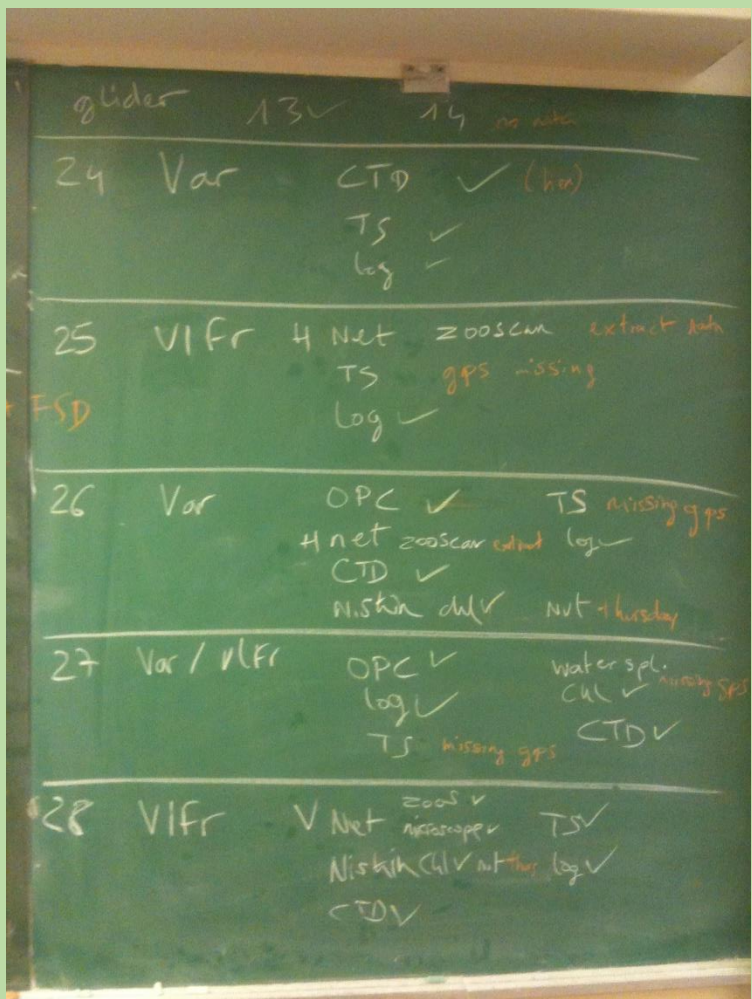 glider 13✓ 14 no data
24 Var CTD ✓
TS ✓
log ✓
25 Vlfr H Net zooscan extract data
TS gps missing
FSD log ✓
26 Var OPC ✓ TS missing gps
H net zooscan extract log ✓
CTD ✓
Niskin chl ✓ Nut thursday
27 Var / Vlfr OPC ✓ water spl. missing gps
log ✓ Chl ✓
TS missing gps CTD ✓
28 Vlfr V Net zoos ✓ microscope ✓ TS ✓
Niskin Chl ✓ nut thurs log ✓
CTD ✓